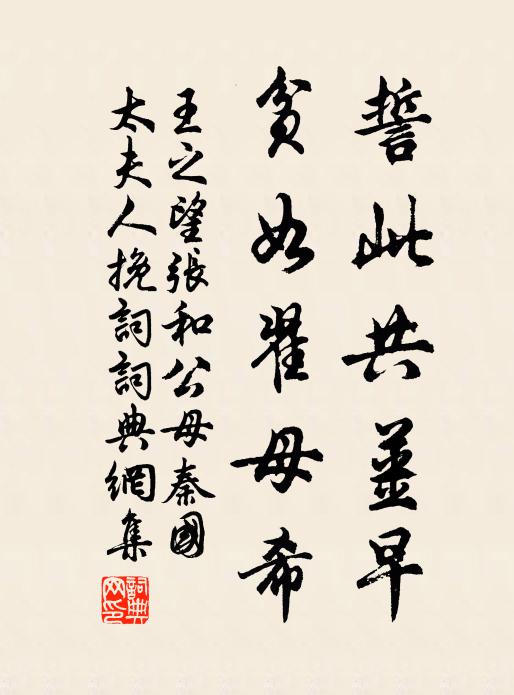 誓此共薑早
貧如翟母希
王之望張和公母秦國
太夫人挽詞詞典網集
詞典網印